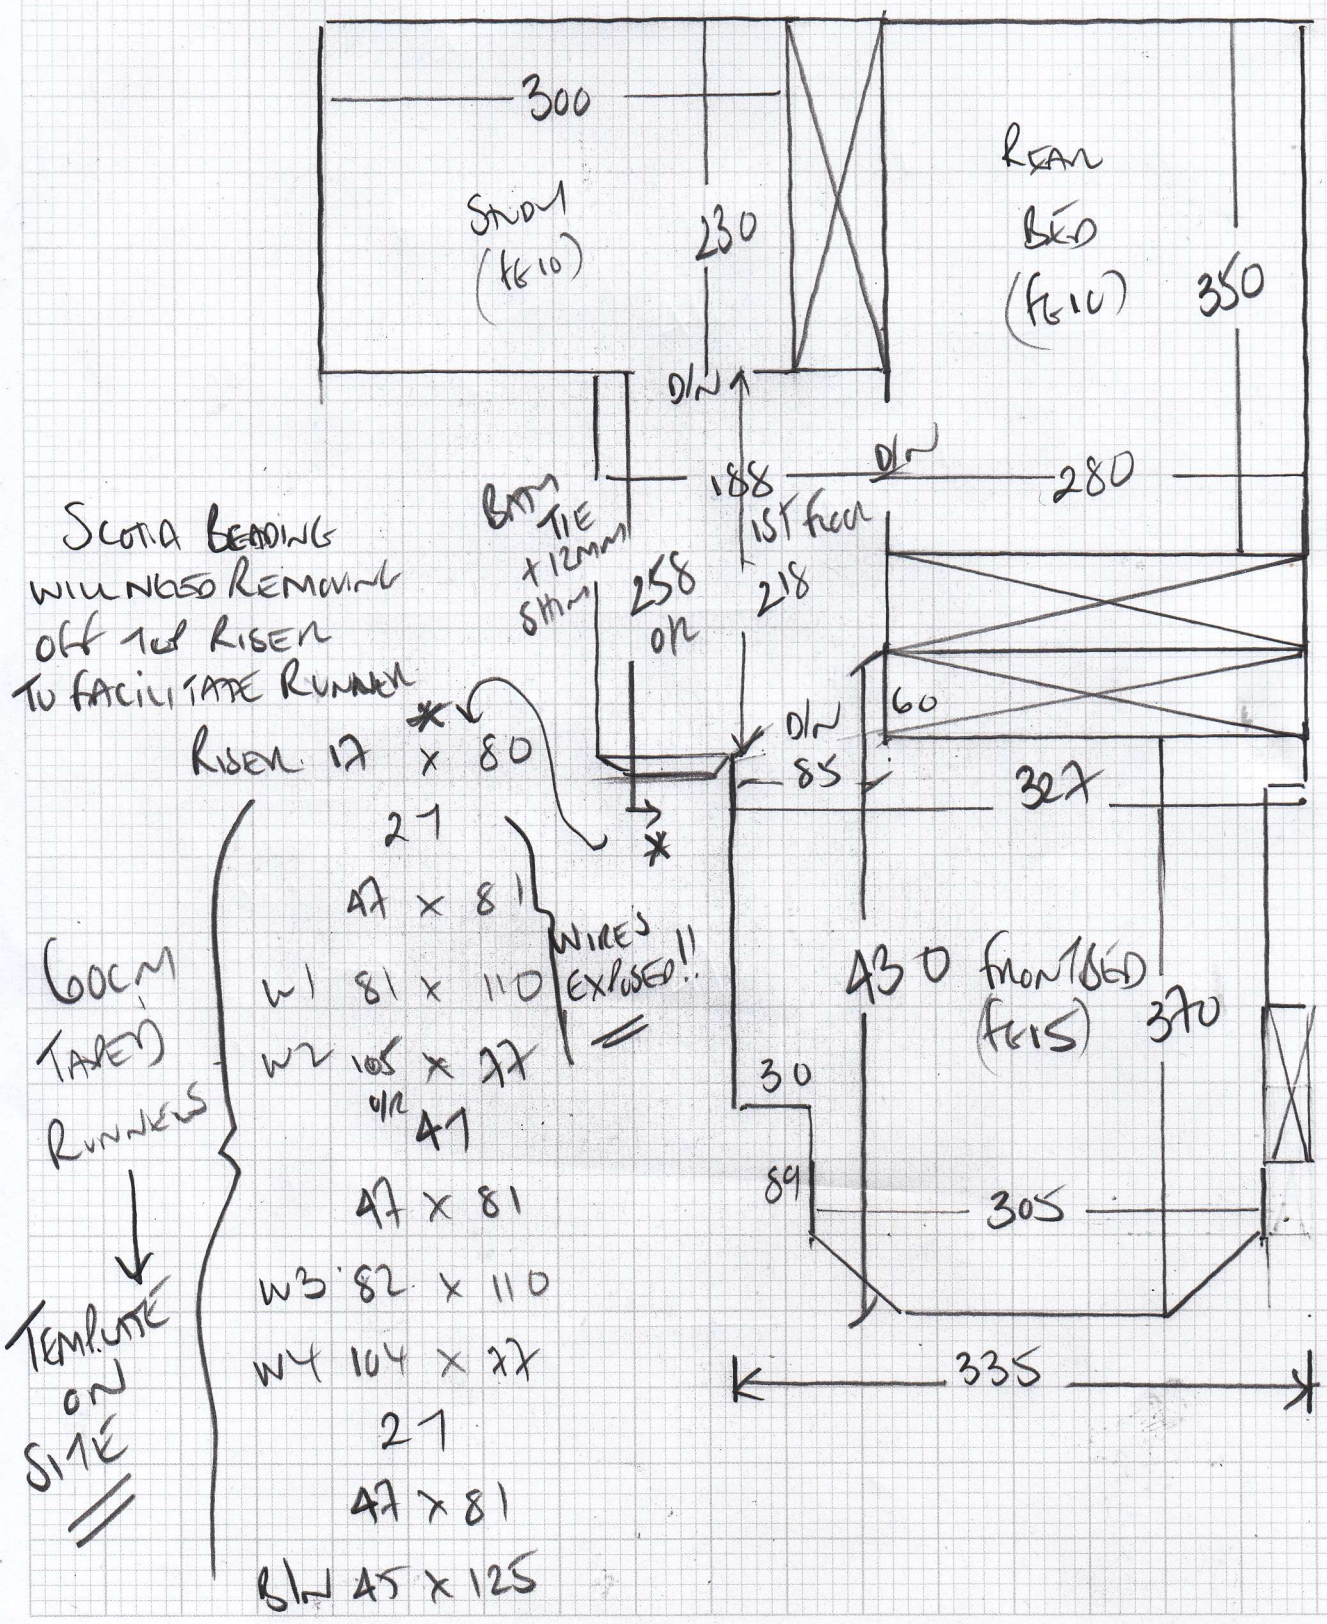 300
STUDY
(FE10)
230
REAR
BED
(FE10)
350
D/N
D/N
188
280
1ST FLOOR
218
BATH
TIE
+ 12MM
SHIM
258
O/R
SCOTIA BEADING
WILL NEED REMOVING
OFF 1ST RISER
TO FACILITATE RUNNER
*
RISER 17 x 80
2T
47 x 81
W1 81 x 110
W2 105 x 77
O/R
4T
47 x 81
W3 82 x 110
W4 104 x 77
2T
47 x 81
B/N 45 x 125
*
WIRES
EXPOSED!!
60CM
TAPED
RUNNERS
TEMPLATE
ON
SITE
D/N
85
60
327
430
FRONT BED
(FE15)
370
30
89
305
335